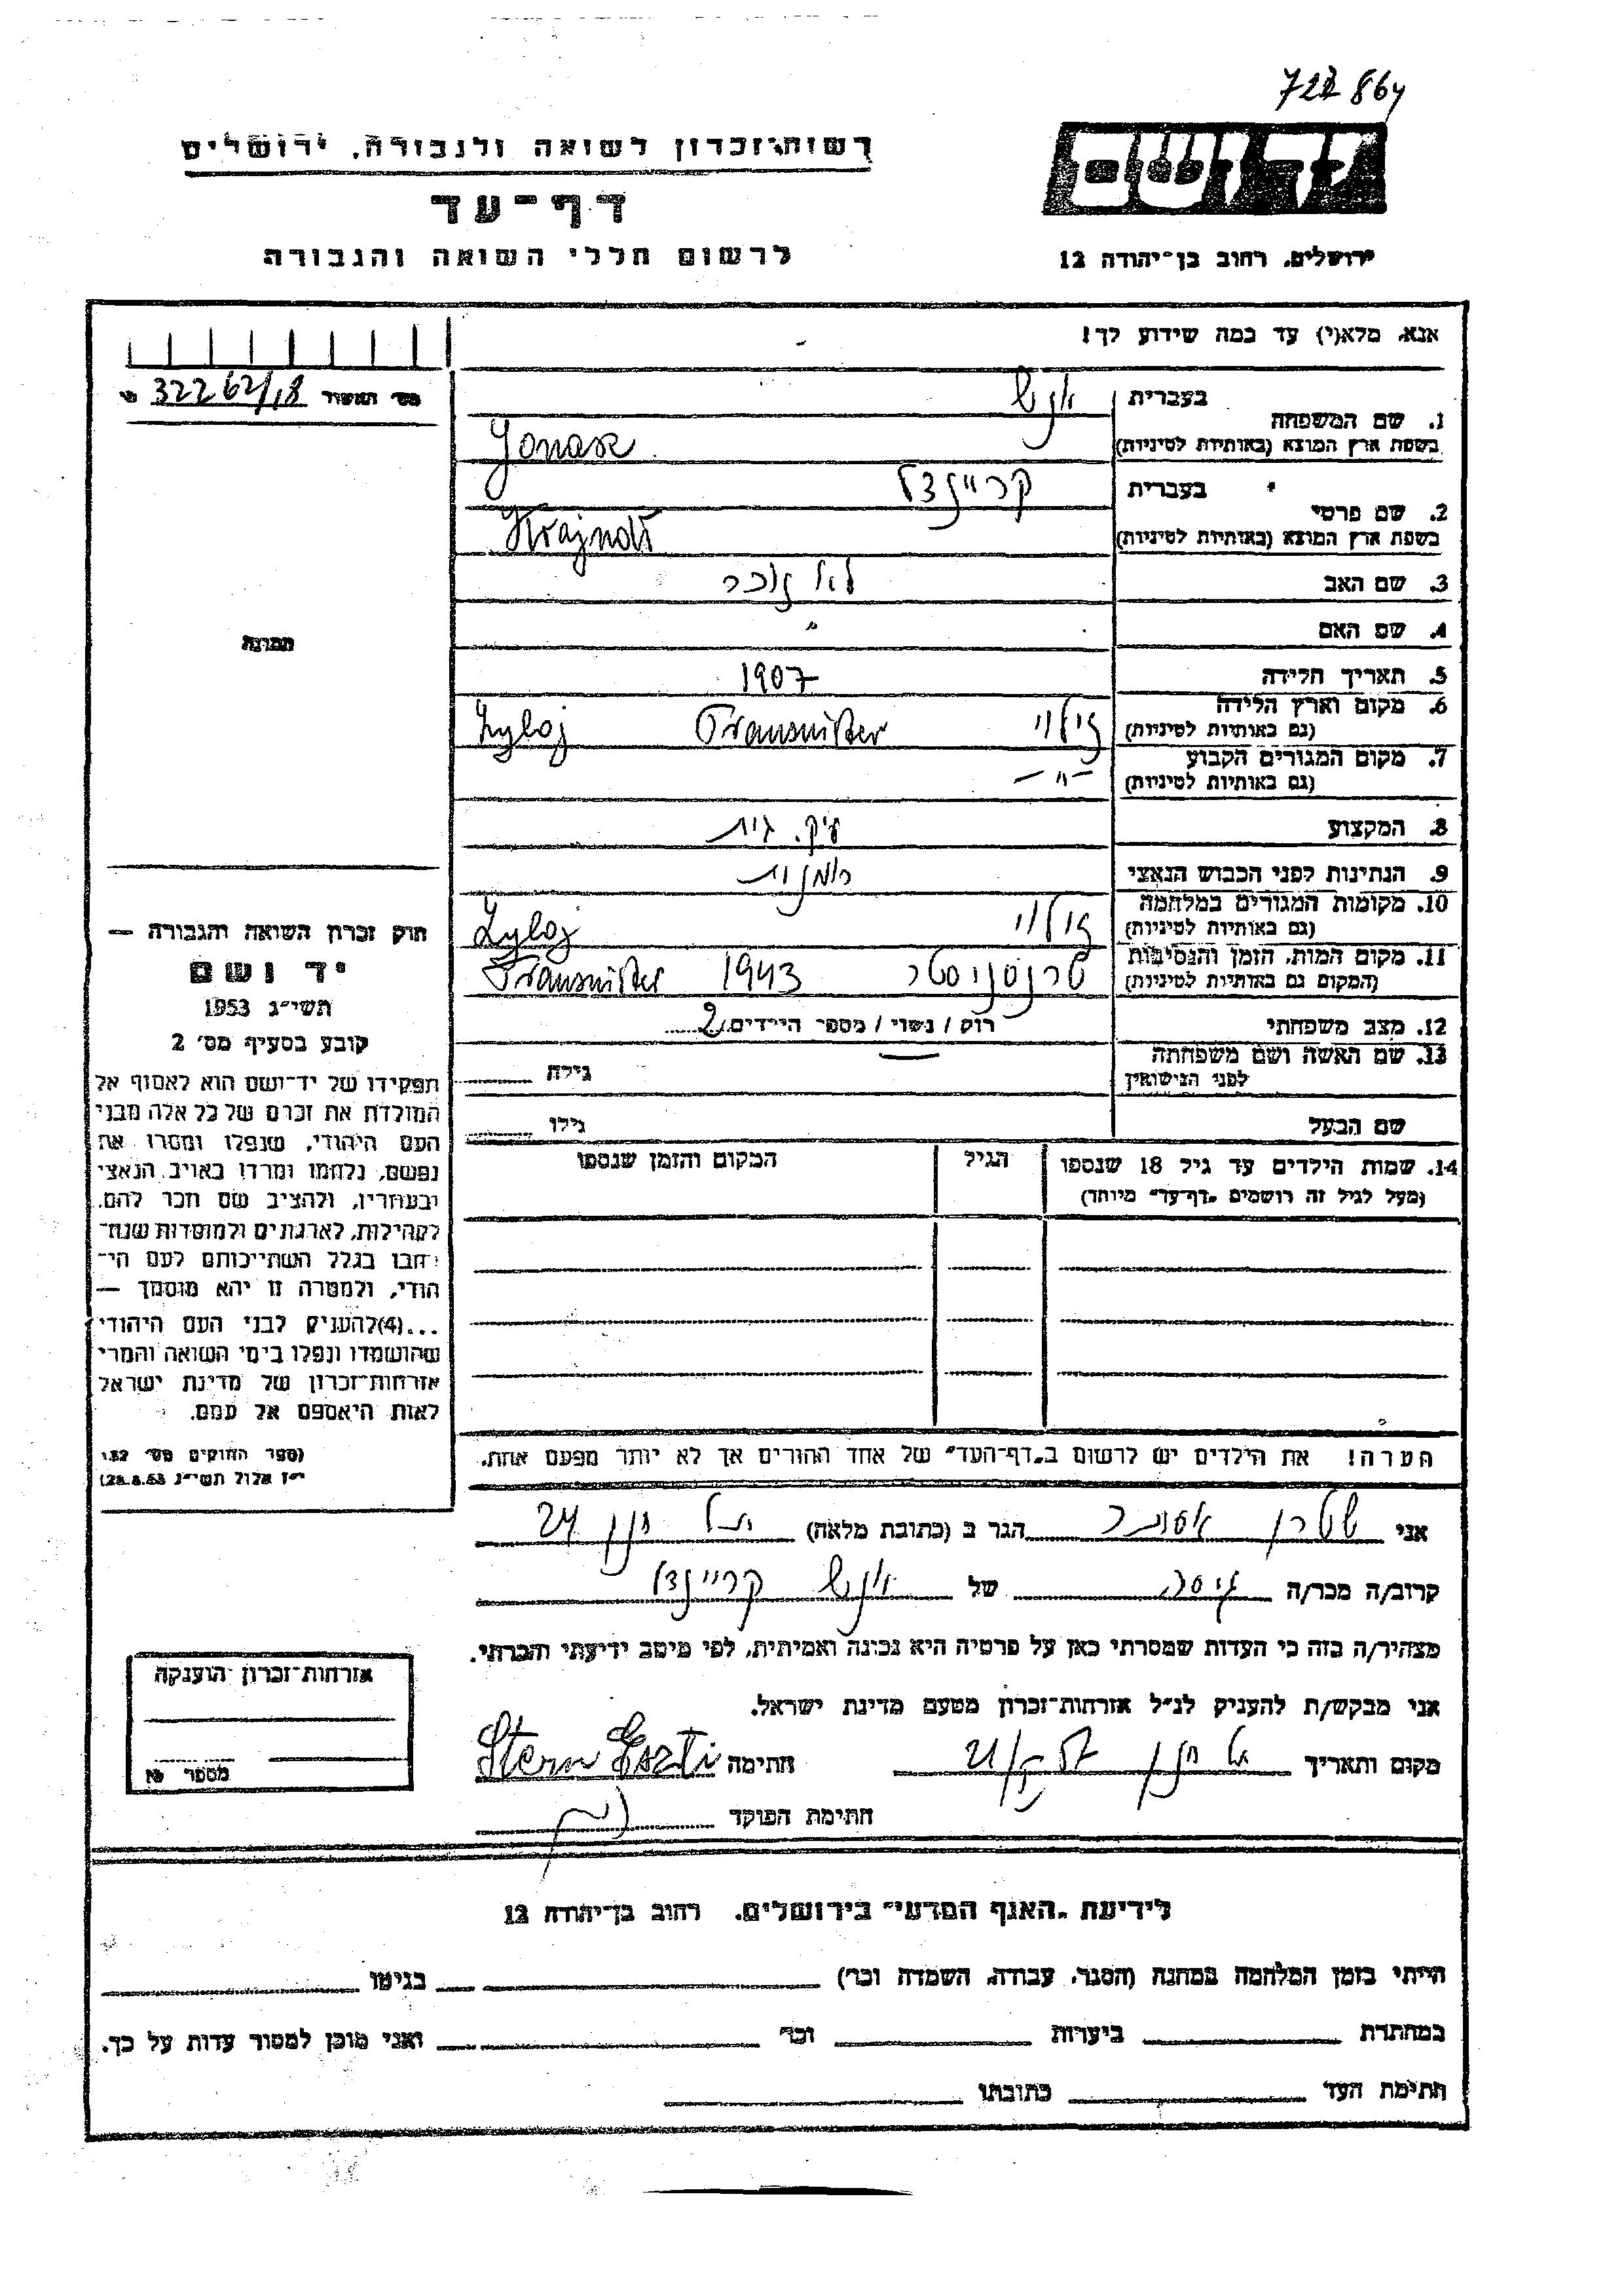 722 864
רשות־זכרון לשואה ולגבורה, ירושלים
דף־עד
לרשום חללי השואה והגבורה
יד ושם
ירושלים, רחוב בן־יהודה 12
אנא, מלא(י) עד כמה שידוע לך!
מס׳ האשור 32262/18
1. שם המשפחה
בעברית יונש
בשפת ארץ המוצא (באותיות לטיניות) Jonasz
2. שם פרטי
בעברית קריינדל
בשפת ארץ המוצא (באותיות לטיניות) Krajndl
3. שם האב לא זוכר
4. שם האם "
5. תאריך הלידה 1907
6. מקום וארץ הלידה
(גם באותיות לטיניות) זילוי Transnister Zyloj
7. מקום המגורים הקבוע
(גם באותיות לטיניות) — " —
8. המקצוע עק. בית
9. הנתינות לפני הכבוש הנאצי רומנות
10. מקומות המגורים במלחמה
(גם באותיות לטיניות) זילוי Zyloj
11. מקום המות, הזמן והנסיבות
(המקום גם באותיות לטיניות) טרנסניסטר 1943 Transnister
12. מצב משפחתי רוק / נשוי / מספר הילדים 2
13. שם האשה ושם משפחתה
לפני הנישואין גילה
שם הבעל גילו
14. שמות הילדים עד גיל 18 שנספו
(מעל לגיל זה רושמים "דף־עד" מיוחד)
הגיל
המקום והזמן שנספו
הערה! את הילדים יש לרשום ב"דף־העד" של אחד ההורים אך לא יותר מפעם אחת.
תמונה
חוק זכרון השואה והגבורה —
יד ושם
תשי״ג 1953
קובע בסעיף מס׳ 2
תפקידו של יד־ושם הוא לאסוף אל
המולדת את זכרם של כל אלה מבני
העם היהודי, שנפלו ומסרו את
נפשם, נלחמו ומרדו באויב הנאצי
ובעוזריו, ולהציב שם וזכר להם,
לקהילות, לארגונים ולמוסדות שנח־
רבו בגלל השתייכותם לעם הי־
הודי, ולמטרה זו יהא מוסמך —
...(4)להעניק לבני העם היהודי
שהושמדו ונפלו בימי השואה והמרי
אזרחות־זכרון של מדינת ישראל
לאות היאספם אל עמם.
(ספר החוקים מס׳ 132,
י״ז אלול תשי״ג 28.8.53)
אני שטרן אסתר הגר ב (כתובת מלאה)
קרוב/ה מכר/ה גיסה של יונש קריינדל
מצהיר/ה בזה כי העדות שמסרתי כאן על פרטיה היא נכונה ואמיתית, לפי מיטב ידיעתי והכרתי.
אני מבקש/ת להעניק לנ״ל אזרחות־זכרון מטעם מדינת ישראל.
מקום ותאריך חתימה Stern Eszti
חתימת הפוקד
אזרחות־זכרון הוענקה
מספר
לידיעת "האגף המדעי" בירושלים, רחוב בן־יהודה 12
הייתי בזמן המלחמה במחנה (הסגר, עבודה, השמדה וכו׳) בגיטו
במחתרת ביערות וכו׳ ואני מוכן למסור עדות על כך.
חתימת העד כתובתו